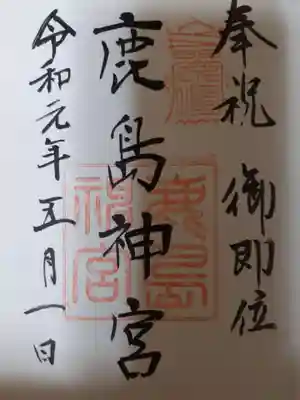 奉祝 御即位
鹿島神宮
令和元年五月一日